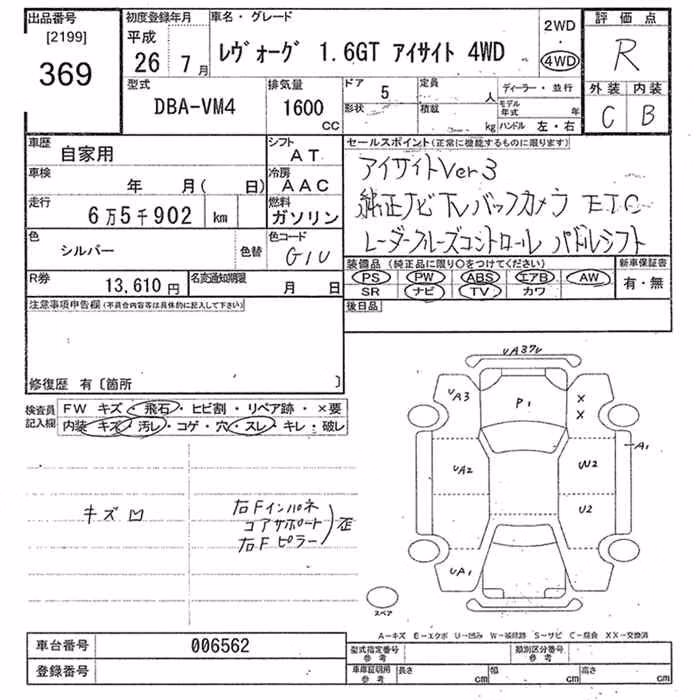 出品番号
[2199]
369
初度登録年月
平成
26 7月
車名・グレード
レヴォーグ 1.6GT アイサイト 4WD
2WD
・
4WD
評価点
R
外装 内装
C B
型式
DBA-VM4
排気量
1600
CC
ドア 5
形状
定員 人
積載 kg
ディーラー・並行
モデル年式 年
ハンドル 左・右
車歴 自家用
シフト AT
車検 年 月( 日)
冷房 AAC
走行 6万5千902 km
燃料 ガソリン
色 シルバー 色替
色コード G1U
R券 13,610円
名変通知期限 月 日
セールスポイント(正常に機能するものに限ります)
アイサイトVer3
純正ナビTVバックカメラ ETC
レーダークルーズコントロール パドルシフト
装備品(純正品に限り○をつけてください)
PS PW ABS エアB AW
SR ナビ TV カワ
新車保証書
有・無
後日品
注意事項申告欄(不具合内容等は具体的に記入して下さい)
修復歴 有〔箇所 〕
検査員記入欄
FW キズ・飛石・ヒビ割・リペア跡・×要
内装 キズ・汚レ・コゲ・穴・スレ・キレ・破レ
キズ凹
右Fインパネ
コアサポート
右Fピラー
歪
UA37U
UA3
P1
×
×
A1
UA2
W2
U2
UA1
スペア
A−キズ E−エクボ U−凹み W−補修跡 S−サビ C−腐食 XX−交換済
車台番号 006562
登録番号
型式指定番号
参考
類別区分番号
参考
車庫証明用
参考
長さ cm 幅 cm 高さ cm